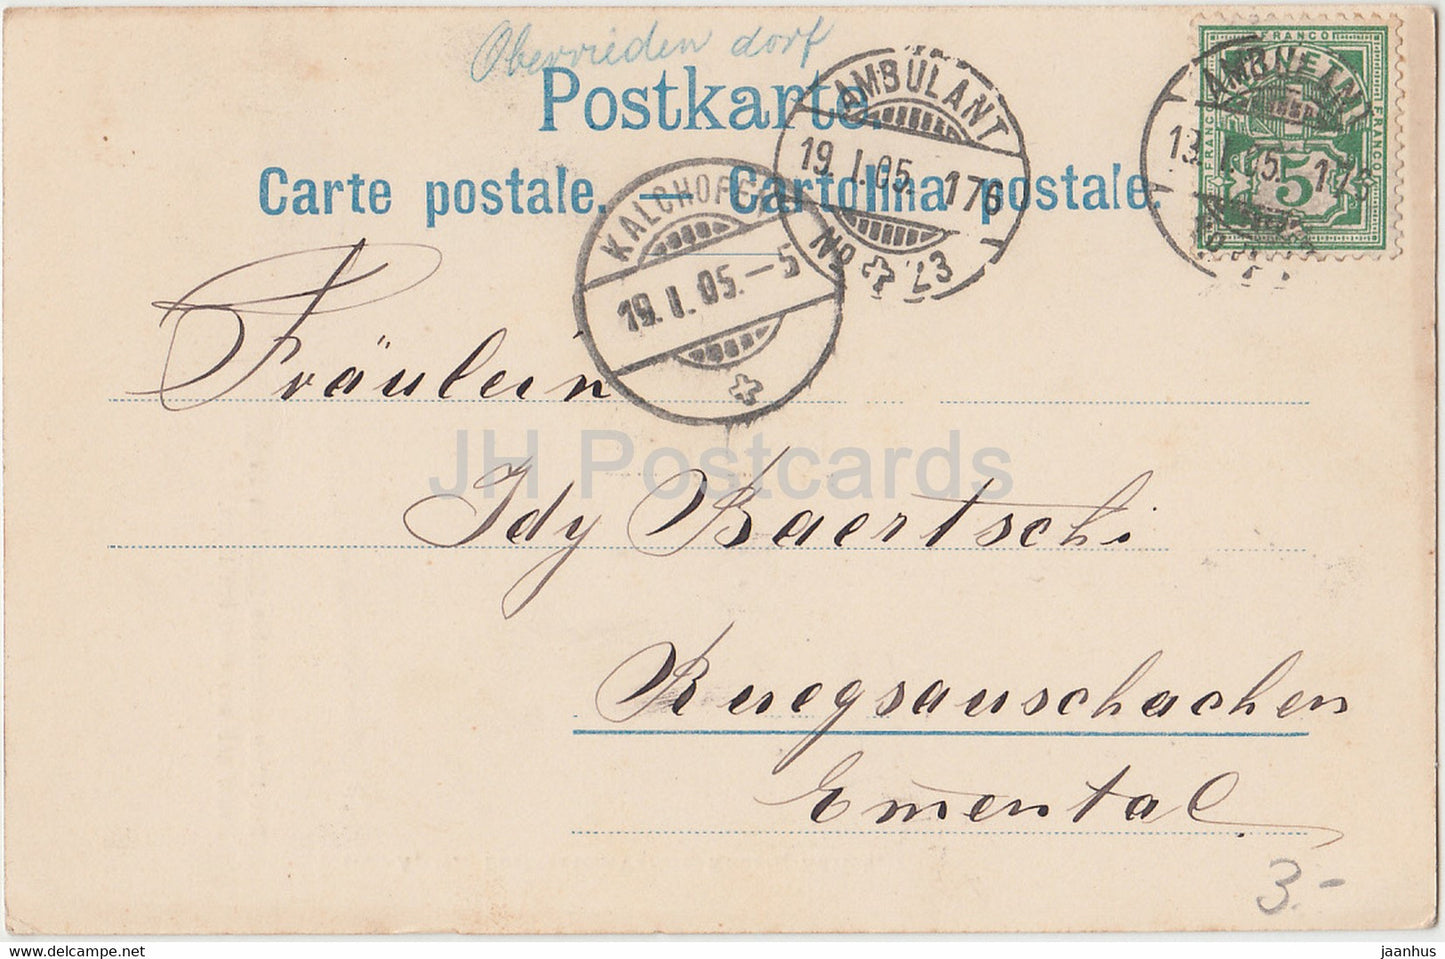 Oberrieden dorf
Postkarte.
Carte postale. — Cartolina postale.
FRANCO
FRANCO
FRANCO
5
AMBULANT
19. I. 05. 176
No 23
AMBULANT
No
KALCHOFEN
19. I. 05. – 5
Fräulein
JH Postcards
Idy Baertschi
Ruegsauschachen
Emental.
3.-
delcampe.net
jaanhus